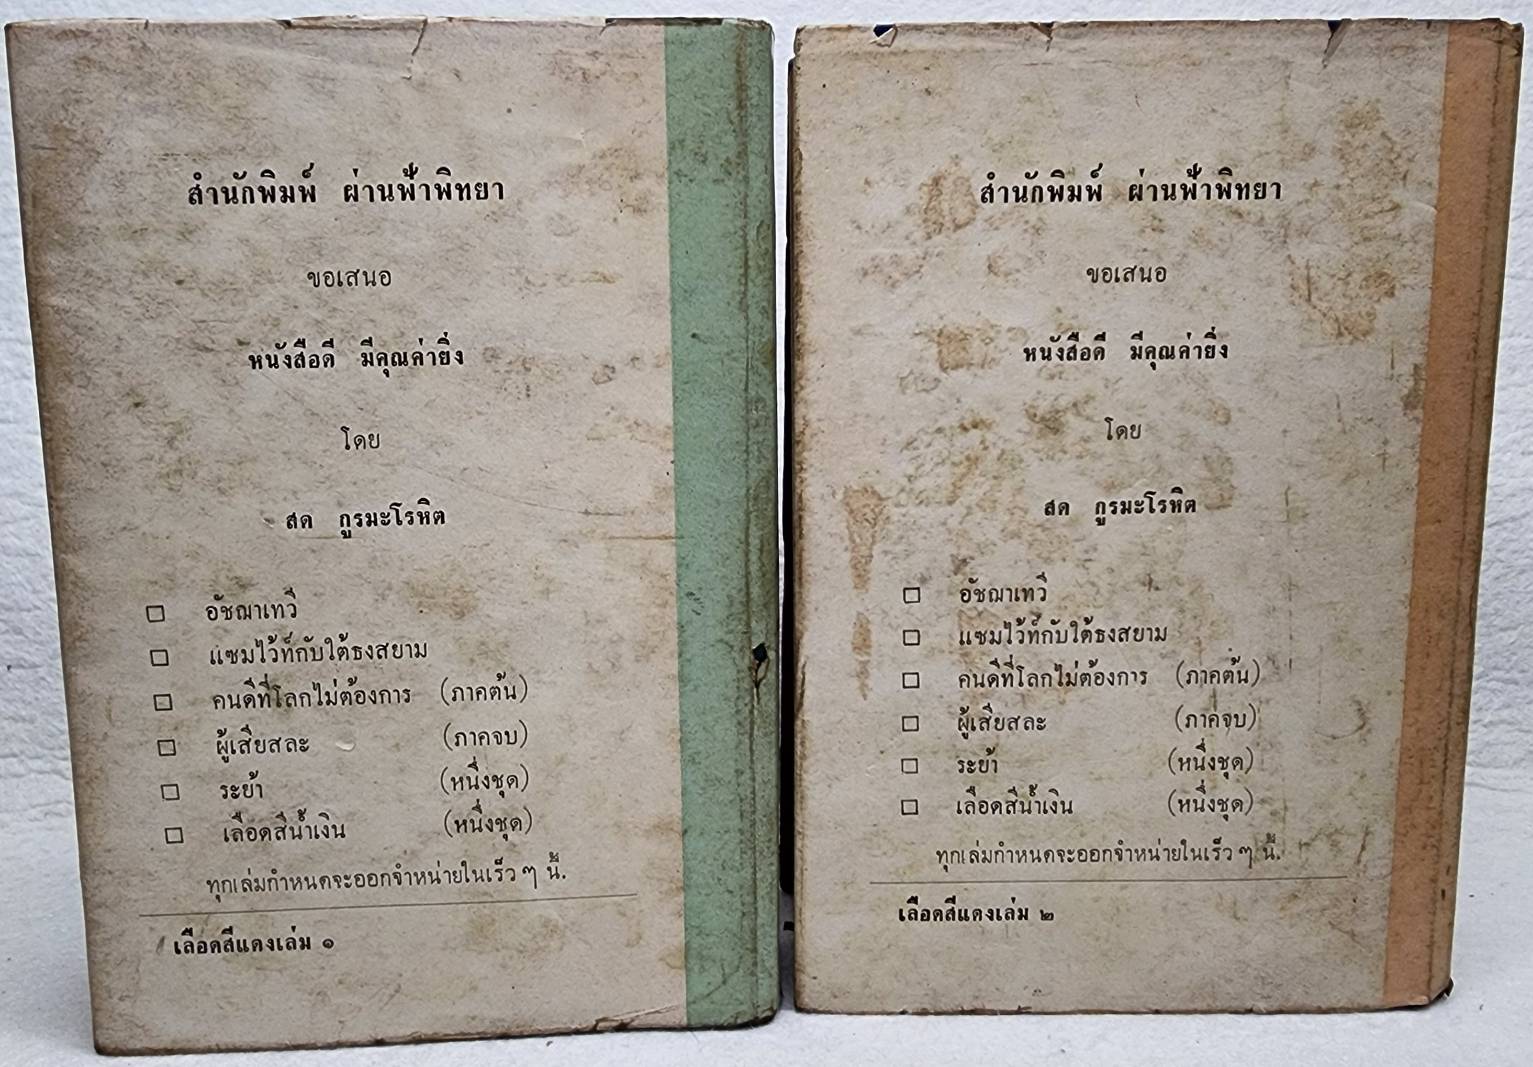 สำนักพิมพ์ ผ่านฟ้าพิทยา
ขอเสนอ
หนังสือดี มีคุณค่ายิ่ง
โดย
สด กูรมะโรหิต
□ อัชฌาเทวี
□ แซมไว้ท์กับใต้ธงสยาม
□ คนดีที่โลกไม่ต้องการ (ภาคต้น)
□ ผู้เสียสละ (ภาคจบ)
□ ระย้า (หนึ่งชุด)
□ เลือดสีน้ำเงิน (หนึ่งชุด)
ทุกเล่มกำหนดจะออกจำหน่ายในเร็ว ๆ นี้.
เลือดสีแดงเล่ม ๑
สำนักพิมพ์ ผ่านฟ้าพิทยา
ขอเสนอ
หนังสือดี มีคุณค่ายิ่ง
โดย
สด กูรมะโรหิต
□ อัชฌาเทวี
□ แซมไว้ท์กับใต้ธงสยาม
□ คนดีที่โลกไม่ต้องการ (ภาคต้น)
□ ผู้เสียสละ (ภาคจบ)
□ ระย้า (หนึ่งชุด)
□ เลือดสีน้ำเงิน (หนึ่งชุด)
ทุกเล่มกำหนดจะออกจำหน่ายในเร็ว ๆ นี้.
เลือดสีแดงเล่ม ๒